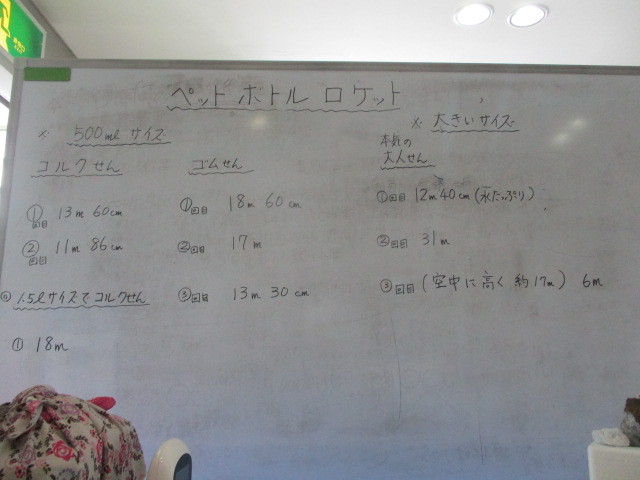 ペットボトルロケット
※ 500ml サイズ
コルクせん
①回目 13m 60cm
②回目 11m 86cm
◎ 1.5ℓサイズでコルクせん
① 18m
ゴムせん
①回目 18m 60cm
②回目 17m
③回目 13m 30cm
※ 大きいサイズ
本気の
大人せん
①回目 12m 40cm (水たっぷり)
②回目 31m
③回目 (空中に高く 約17m) 6m